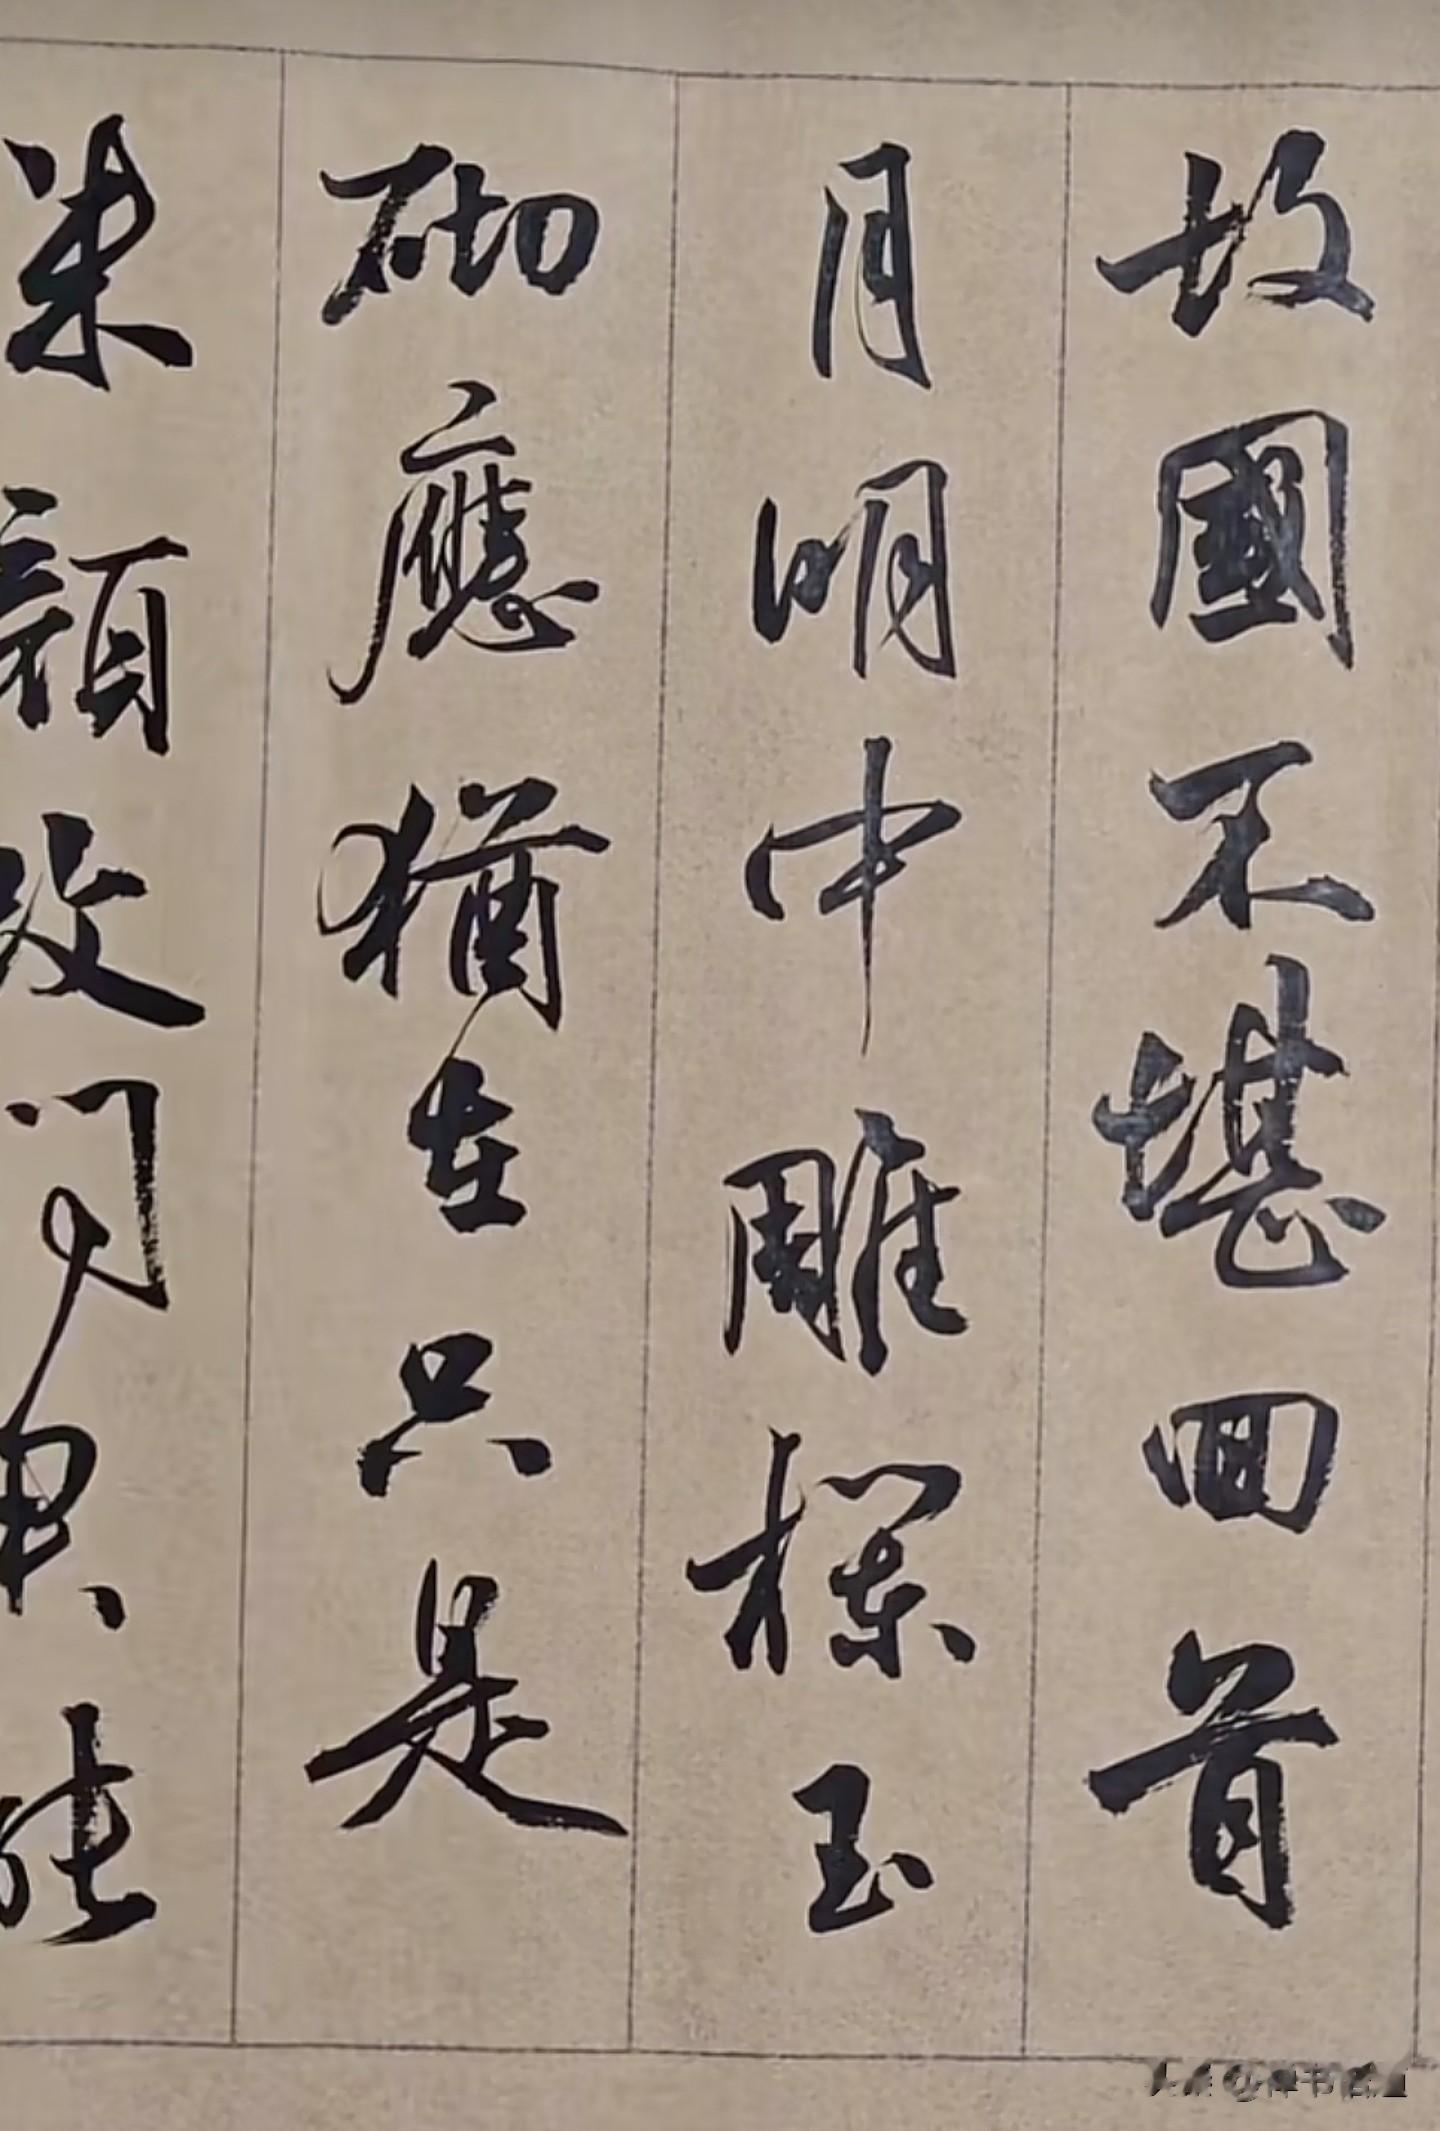 故國不堪回首
月明中雕欄玉
砌應猶在只是
朱顏改問君能